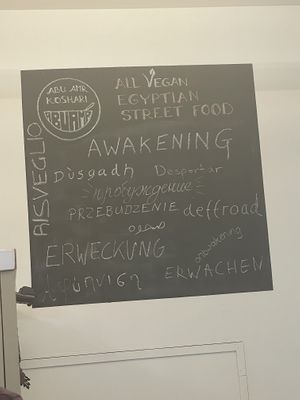 ABU AMR
KOSHARI
ALL VEGAN
EGYPTIAN
STREET FOOD
RISVEGLIO
AWAKENING
Dùsgadh Despertar
пробуждение
PRZEBUDZENIE deffroad
صحوه
ERWECKUNG
awakening
αφύπνιση ERWACHEN